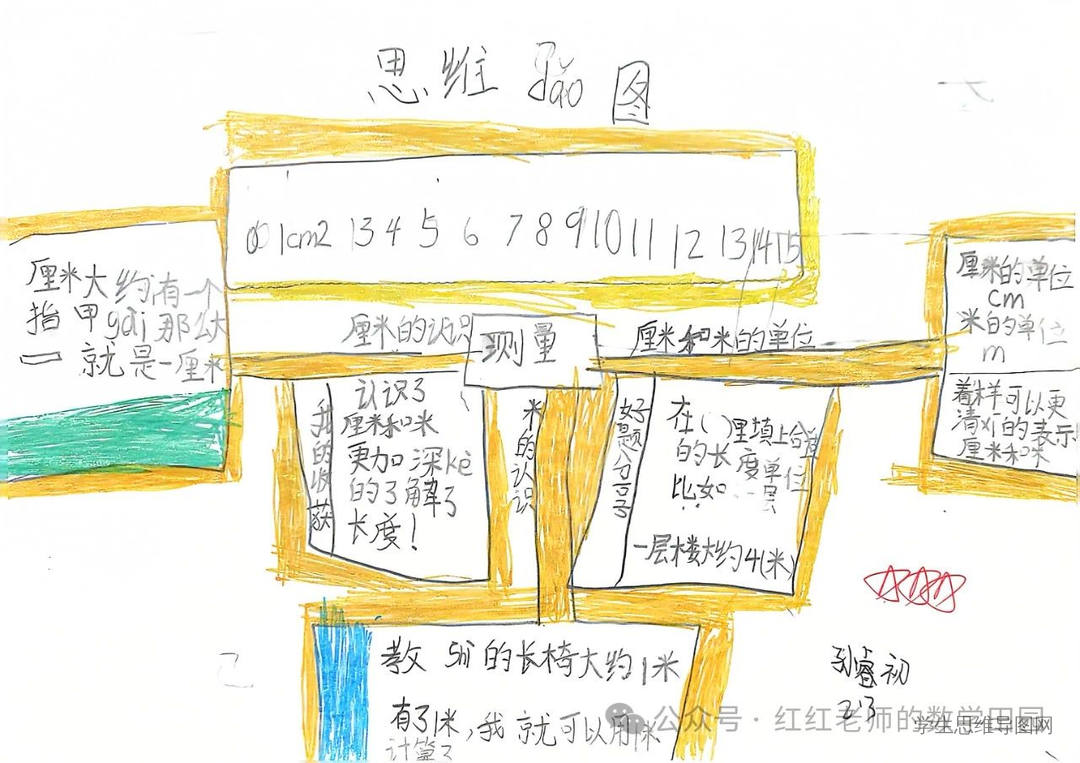 思维dao图
0 1cm2 13 4 5 6 7 8 9 10 11 12 13 14 15
厘米大约有一个
指甲gài那么
一就是一厘米
厘米的认识
测量
厘米和米的单位
厘米的单位
cm
米的单位
m
着样可以更
清xi的表示
厘米和米
我的收获
认识了
厘米和米
更加深kè
的了解了
长度!
米的认识
好题分享
在( )里填上合适
的长度单位
比如:一层
一层楼大约4(米)
教shi的长椅大约1米
有了1米,我就可以用米
计算了
孙睿初
2.3
公众号·红红老师的数学田园
学生思维导图网